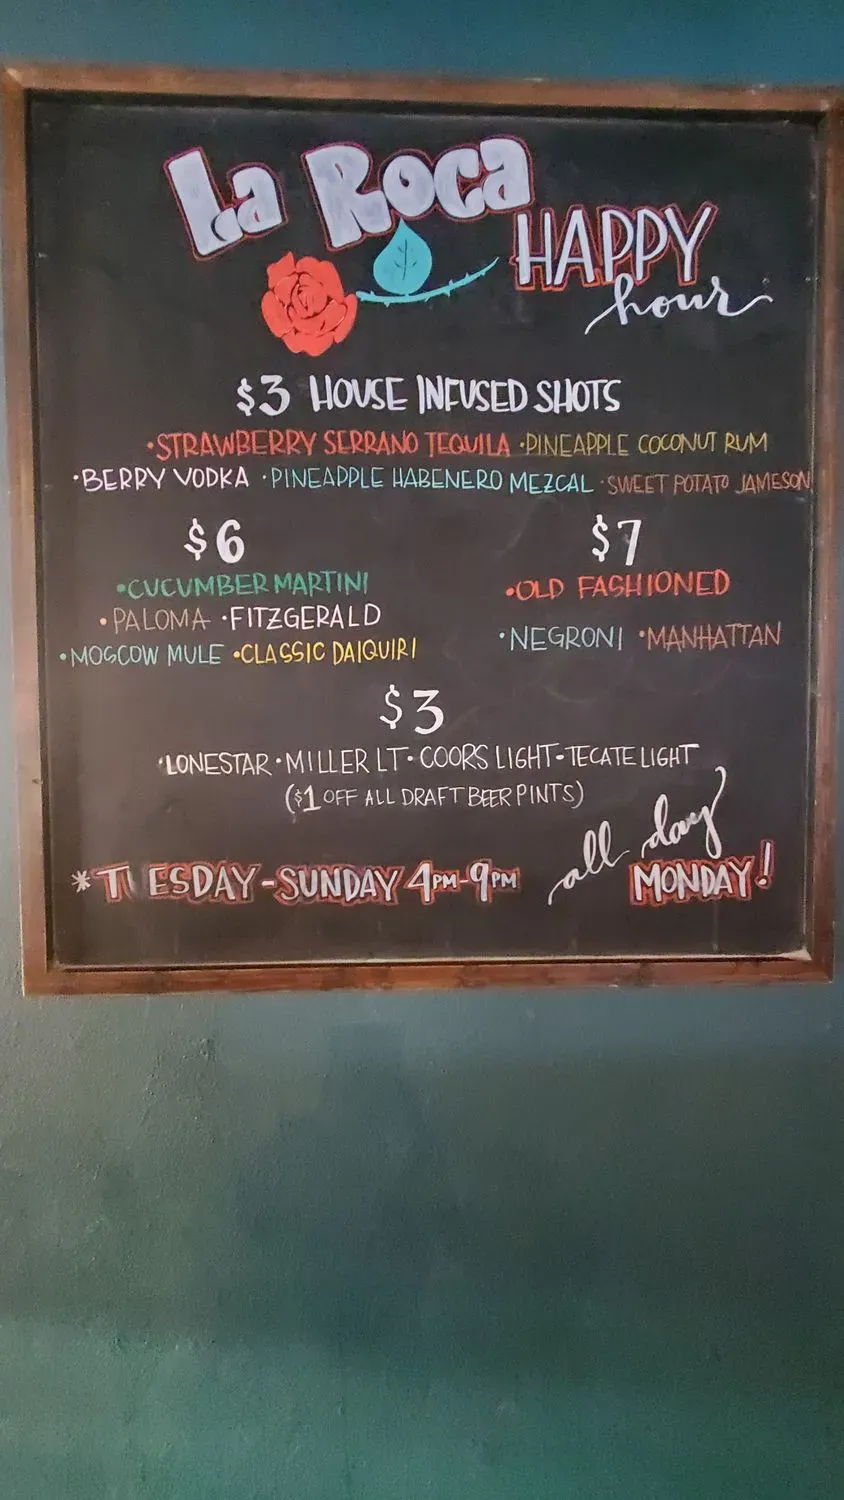 La Roca
HAPPY
hour
$3 HOUSE INFUSED SHOTS
•STRAWBERRY SERRANO TEQUILA •PINEAPPLE COCONUT RUM
•BERRY VODKA •PINEAPPLE HABENERO MEZCAL •SWEET POTATO JAMESON
$6
•CUCUMBER MARTINI
•PALOMA •FITZGERALD
•MOSCOW MULE •CLASSIC DAIQUIRI
$7
•OLD FASHIONED
•NEGRONI •MANHATTAN
$3
•LONESTAR •MILLER LT• COORS LIGHT•TECATE LIGHT
($1 OFF ALL DRAFT BEER PINTS)
*T ESDAY-SUNDAY 4PM-9PM
all day
MONDAY!